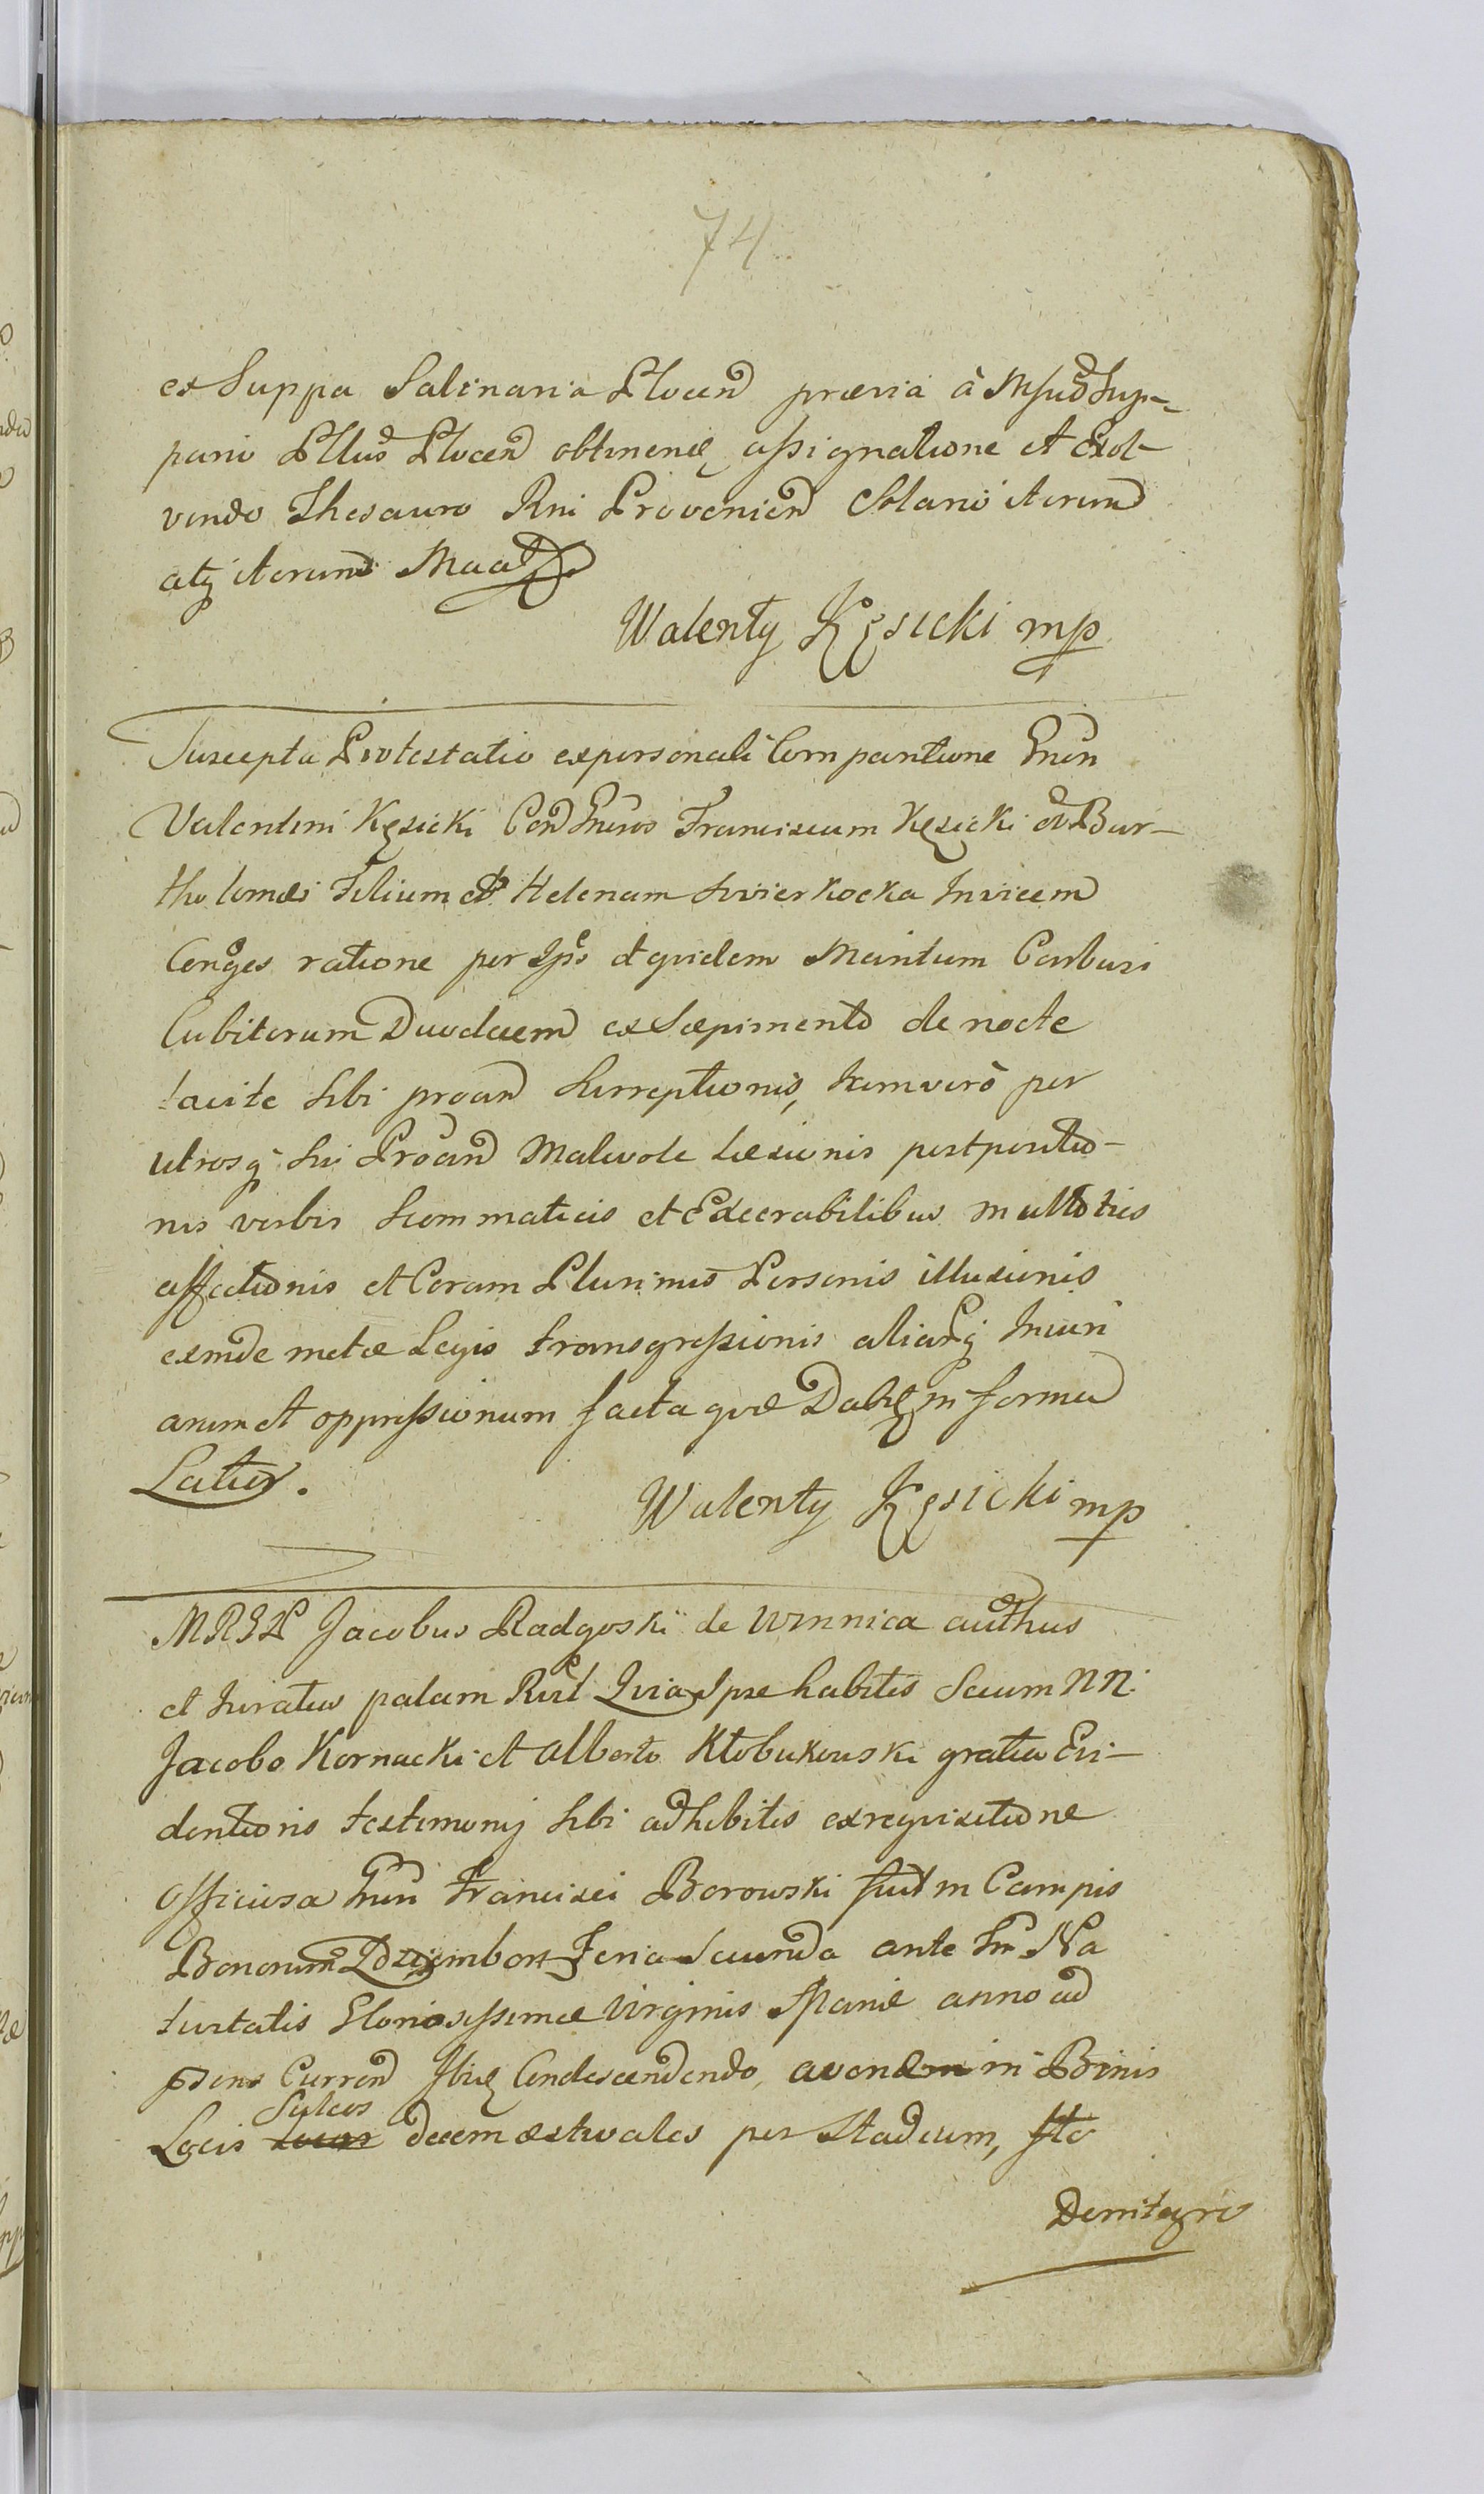 74
ex Suppa Salinaria Plocen prævia à Msus Sup-
pario Pllus Plocen obtinen assignatione et Exol-
vendo Thesauro Rni Provenien Solario iterum
atq iterum Maa
Walenty Kęsicki mp
Suscepta Protestatio ex personali Comparitione Gnen
Valentini Kęsicki Con Gneros Franciscum Kęsicki ol Bar-
tholomæi Filium et Helenam Swierkocka Invicem
Conges ratione per Ipos et quidem Maritum Carbasi
Cubitorum Duodecem ex Sæpimento de nocte
tacite Sibi proan Surreptionis, Item verò per
utrosq Sui Proan Malevole Læsionis postposito-
nis verbis Scommaticis et Execrabilibus multoties
affectionis et Coram Plurimis Personis illusionis
exinde metæ Legis transgressionis aliarq Iniuri
arum et oppressionum facta quæ Dab in forma
Latior.
Walenty Kęsicki mp
MRGL Jacobus Radgoski de Winnica authus
et Juratus palam Rect Quia Ipse habitis Secum NN.
Jacobo Kornacki et Alberto Kłobukowski gratia Evi-
dentioris testimonij Sibi adhibitis ex requisitione
officiosa Gnen Francisci Borowski fuit in Campis
Bonorum Dziembor Feria Secunda ante Fm Na
tivitatis Gloriosissimæ Virginis Mariæ anno ad
præsens Curren Ibiq Condescendendo, avenam in Binis
Locis Sulcos decem æstivales per Stadium,
Demitegro